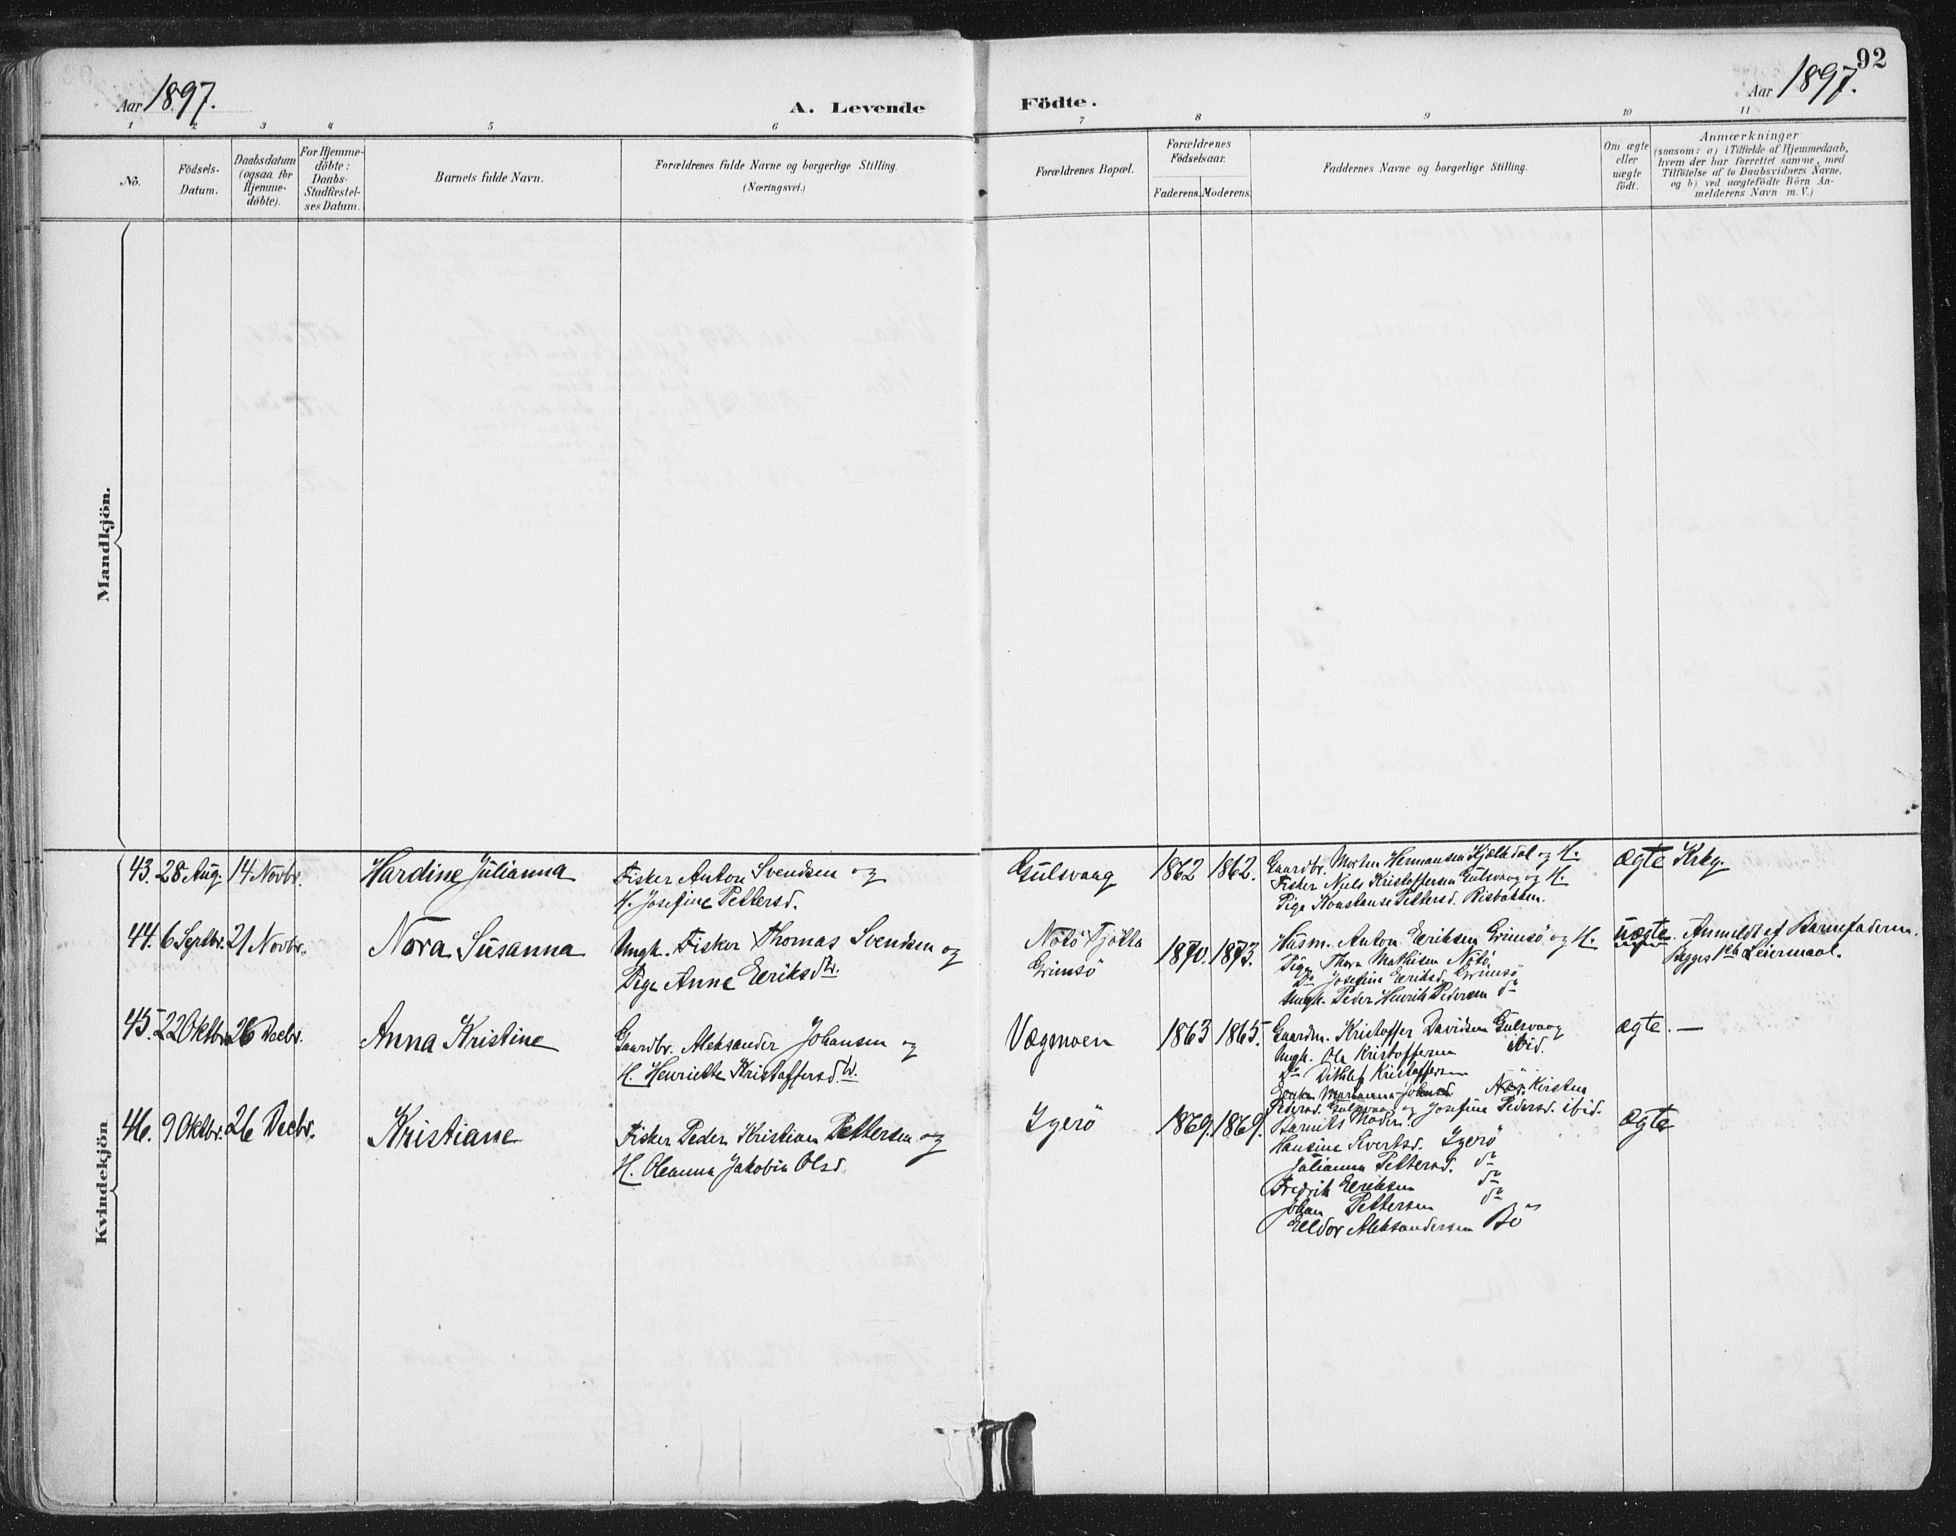 Aar 1897.
A. Levende
Födte.
Aar 1897.
92
1 2 3 4 5 6 7 8 9 10 11
No.
Födsels-
Datum.
Daabsdatum
(ogsaa for
Hjemme-
döbte).
For Hjemme-
döbte:
Daabs-
Stadfæstel-
ses Datum.
Barnets fulde Navn.
Forældrenes fulde Navne og borgerlige Stilling.
(Næringsvei.)
Forældrenes Bopæl.
Forældrenes
Födselsaar.
Faderens. Moderens.
Faddernes Navne og borgerlige Stilling.
Om ægte
eller
uægte
födt.
Anmærkninger
(saasom: a) i Tilfælde af Hjemmedaab,
hvem der har forrettet samme, med
Tilföielse af to Daabsvidners Navne,
og b) ved uægtefödte Börn An-
melderens Navn m. V.)
Mandkjön.
Kvindekjön
43. 28 Aug. 14 Novbr. Hardine Julianna
Fisker Anton Svendsen og
H. Josefine Pettersd.
Gulsvaag 1862 1862.
Gaardbr. Morten Hermansen og H.
Fisker Niels Kristoffersen Gulsvaag og H.
Pige Konstanse Pettersd. Risbakken.
ægte Kirkg.
44. 6 Septbr. 21 Novbr. Nora Susanna
Ungk. Fisker Thomas Svendsen og
Pige Anne Eeriksdtr.
Nötö Tjötta
Grimsö
1870. 1873.
Husm. Anton Eeriksen Grimsö og H.
Pige Thora Mathisen Nötö
Do Josefine Eeriksd. Grimsö
Ungk. Peder Henrik Pedersen do
uægte. Anmeldt af Barnefaderen.
Begges 1ste Leiermaal.
45. 22 Oktbr. 26 Decbr. Anna Kristine
Gaardbr. Aleksander Johansen og
H. Henriette Kristoffersdtr.
Vægmoen 1863 1865.
Gaardm. Kristoffer Davidsen Gulsvaag
Ungk. Ole Kristoffersen ibid.
Do Ditlef Kristoffersen
Enke Marianna
Pedersd. Gulsvaag og Josefine Pedersd. ibid.
ægte. —
46. 9 Oktbr. 26 Decbr. Kristiane
Fisker Peder Kristian Pettersen og
H. Oleanna Jakobin Olsd.
Igerö 1869. 1869.
Barnets Moder.
Hansine Sivertsd. Igerö
Julianna Pettersd. do
Fredrik Eeriksen do
Johan Pettersen do
Eldor Aleksandersen Bö
ægte